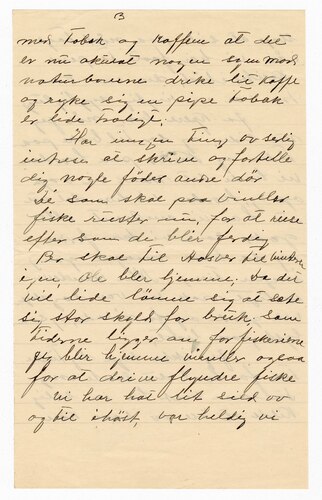 3
med Tobak og Kaffem at det
er nu akurat nogen som mod
naturboverne drike lit Kaffe
og ryke sig en pipe Tobak
er lide troligt.
Har ingen Ting ov serlig
intres at skrive og fortelle
dig nogle føder andre dør
De som skal paa vinter
fiske ruster nu, for at reise
efter som de blir ferdig
Br skal til Hasver til vinter
igen, Ole bler hjemme; Da der
vil lide lønne sig at sete
sig stor skyld for bruk, som
tiderne ligger an, for fiskerierne
jeg bler hjemme vinter ogsaa
for at drive flyndre fiske
vi har hat lit sild ov
og til i høst, var heldig vi